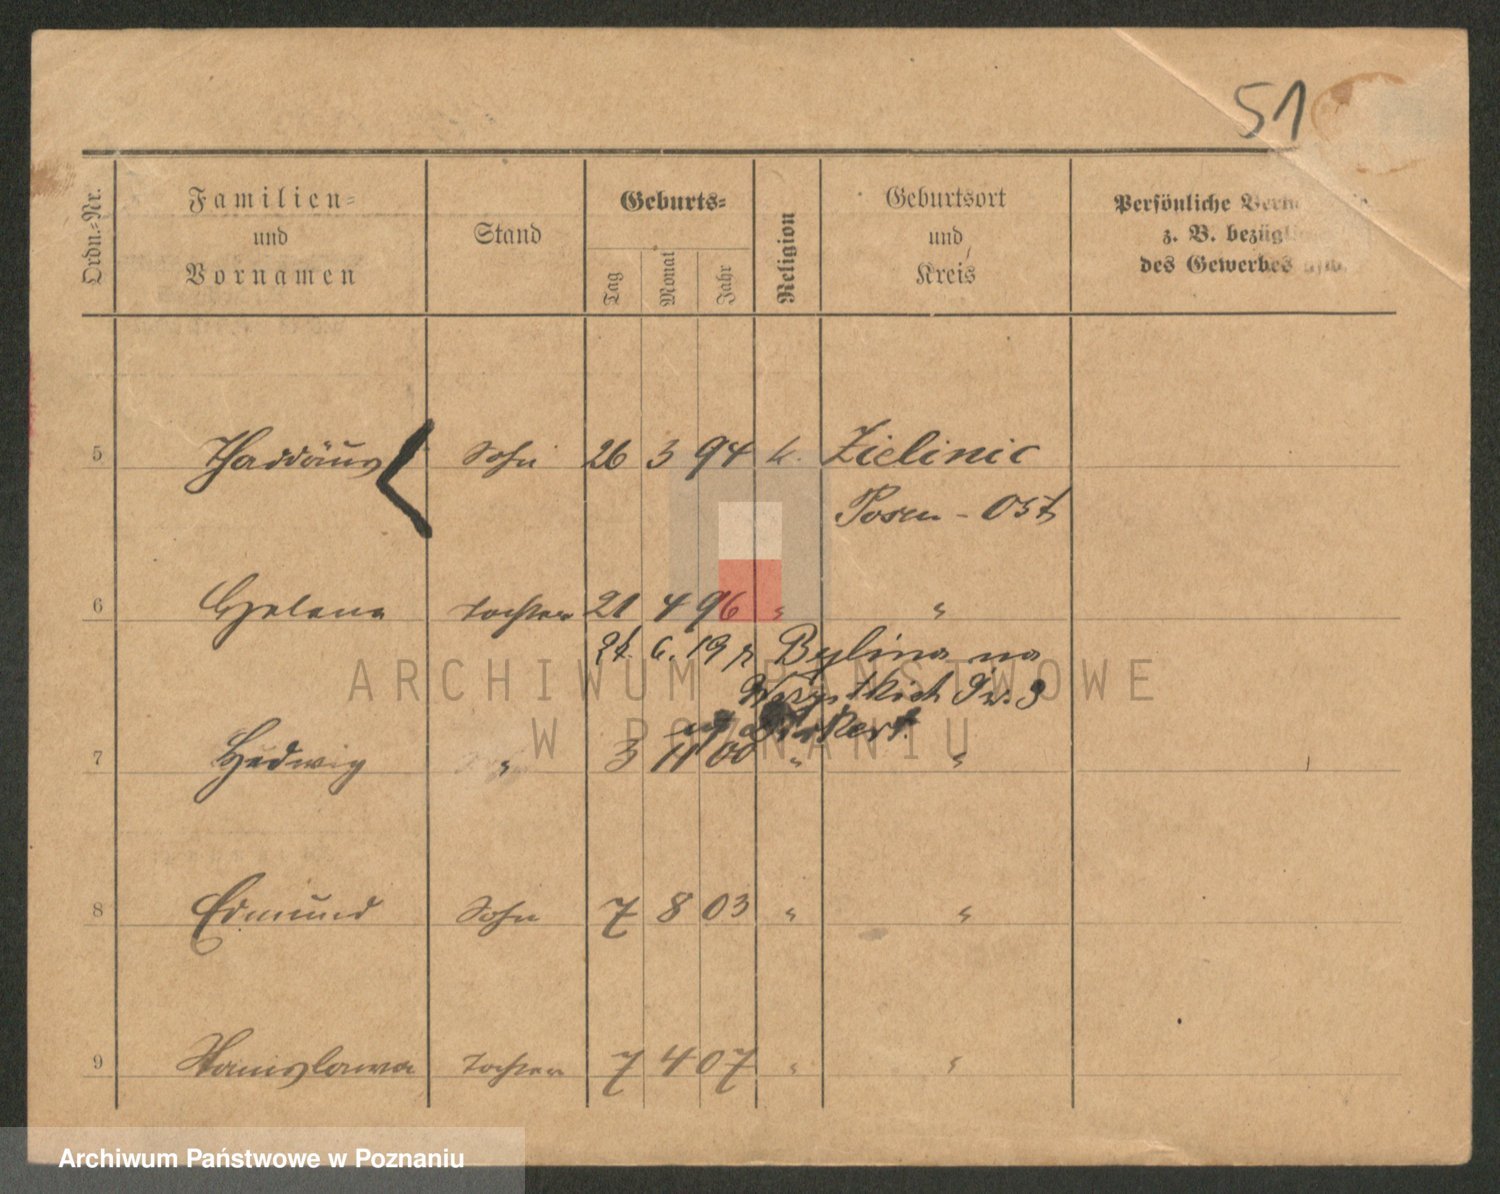 51
Ordn.-Nr.
Familien-
und
Vornamen
Stand
Geburts-
Tag
Monat
Jahr
Religion
Geburtsort
und
Kreis
Persönliche
z. B.
des Gewerbes usw.
5 Thaddäus Sohn 26 3 94 k. Zielinic
Posen - Ost
6 Helena Tochter 21 4 96 " "
6. 19 Bylina na
7 Hedwig " 3 11 00 " "
8 Edmund Sohn 7 8 03 " "
9 Stanislawa Tochter 7 4 07 " "
ARCHIWUM PAŃSTWOWE
W POZNANIU
Archiwum Państwowe w Poznaniu